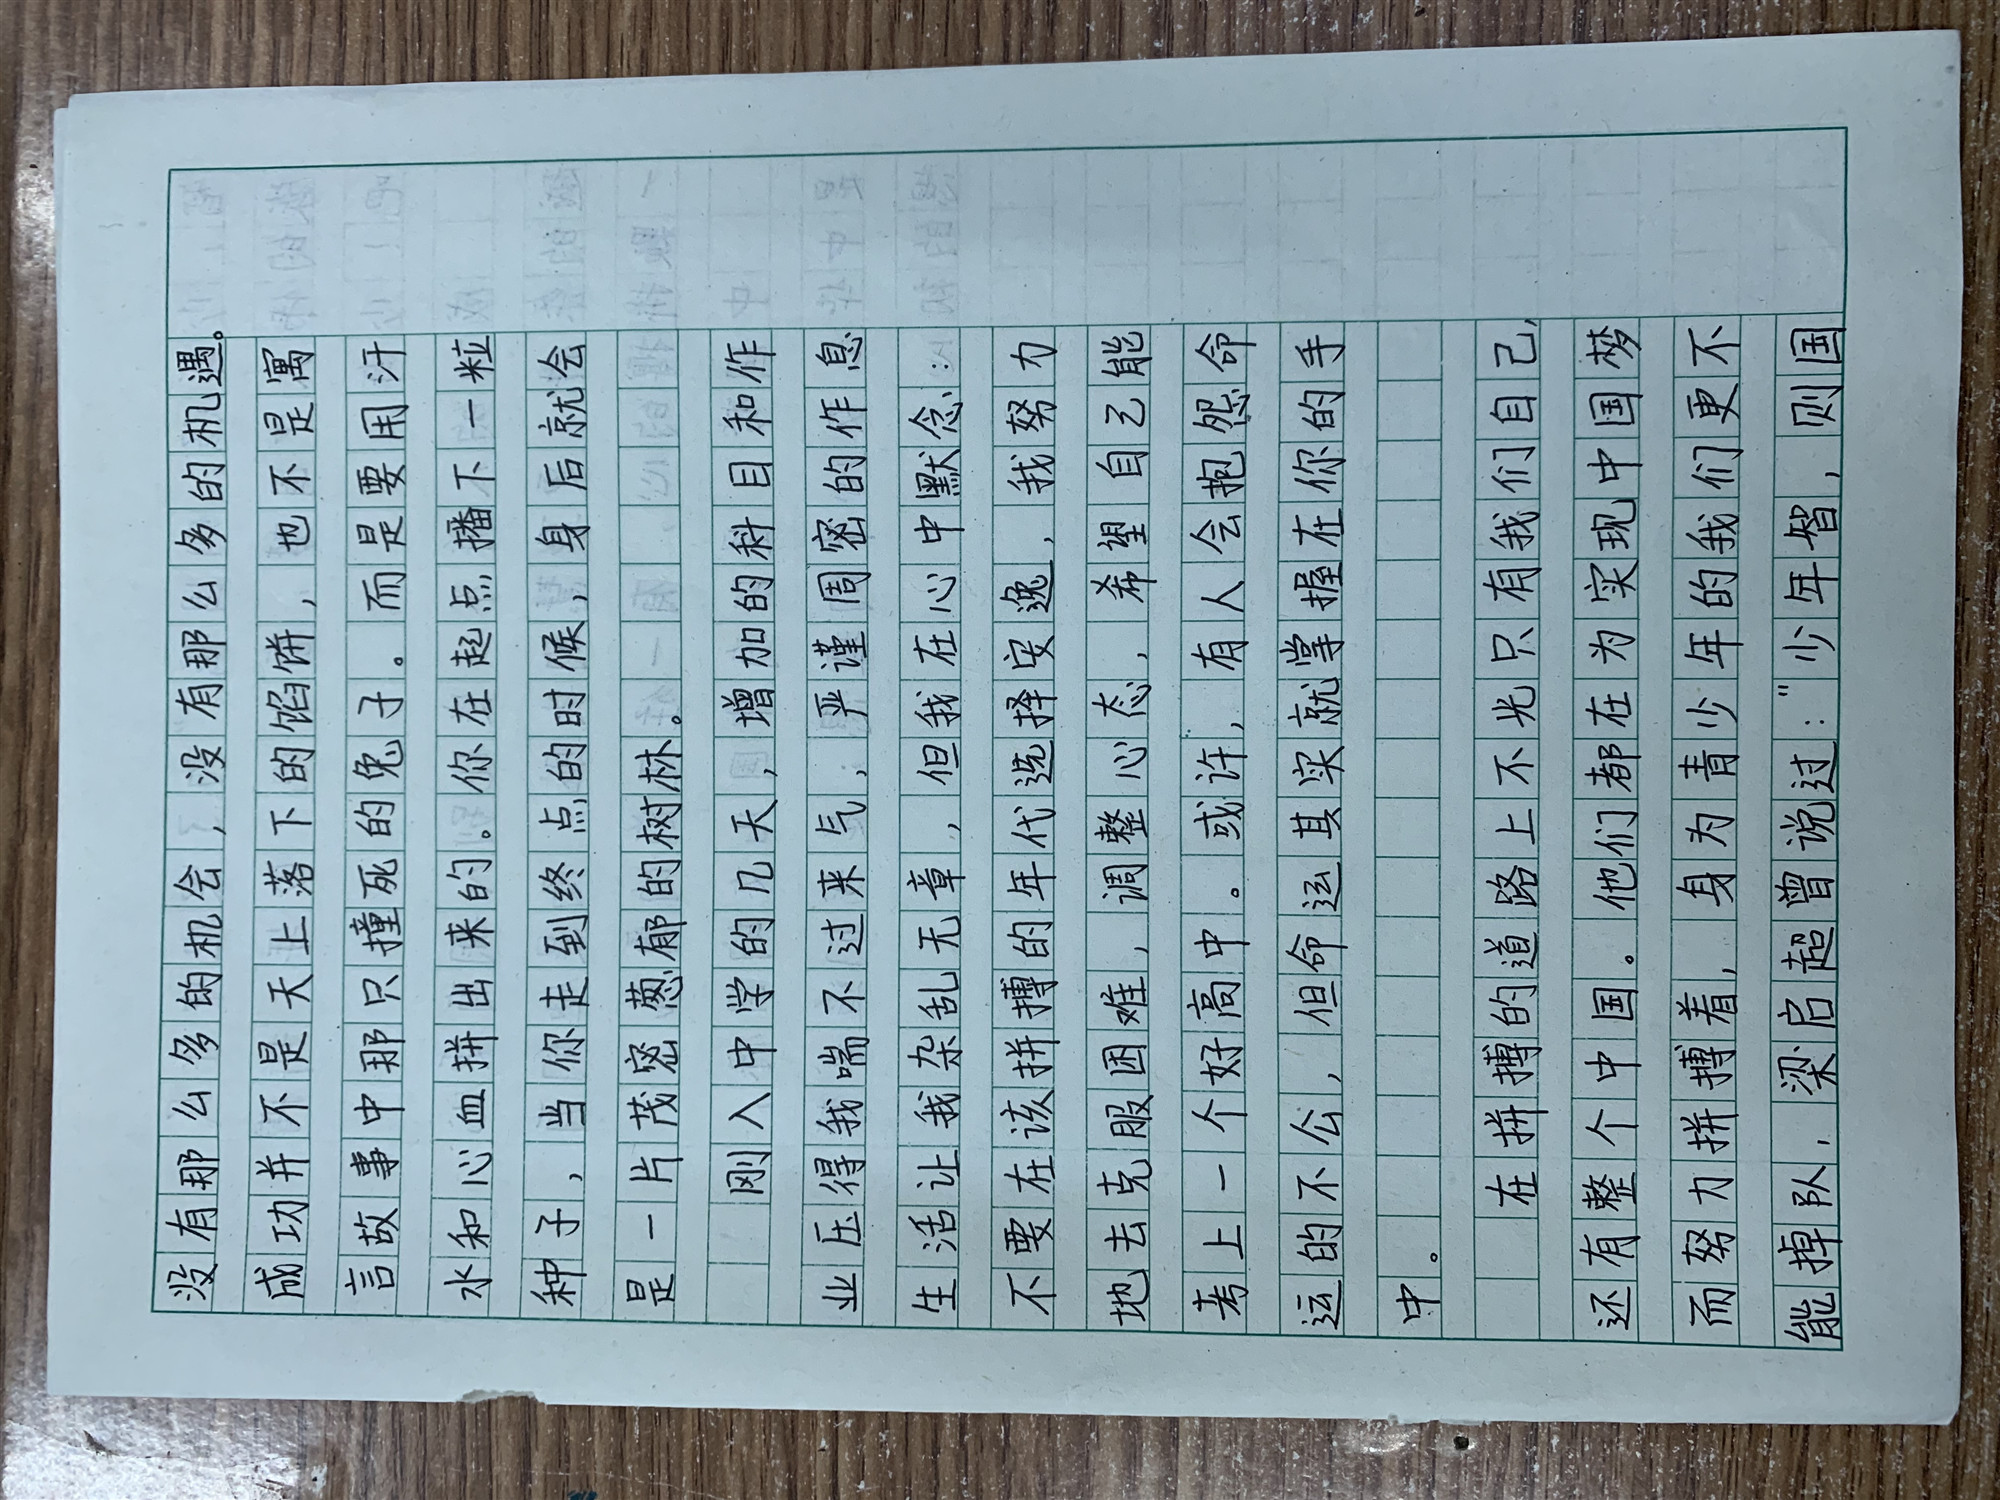 没有那么多的机会，没有那么多的机遇。
成功并不是天上落下的馅饼，也不是寓
言故事中那只撞死的兔子。而是要用汗
水和心血拼出来的。你在起点播下一粒
种子，当你走到终点的时候，身后就会
是一片茂密葱郁的树林。
刚入中学的几天，增加的科目和作
业压得我喘不过来气，严谨周密的作息
生活让我杂乱无章，但我在心中默念：
不要在该拼搏的年代选择安逸，我努力
地去克服困难，调整心态，希望自己能
考上一个好高中。或许，有人会抱怨命
运的不公，但命运其实就掌握在你的手
中。
在拼搏的道路上不光只有我们自己，
还有整个中国。他们都在为实现中国梦
而努力拼搏着，身为青少年的我们更不
能掉队，梁启超曾说过："少年智，则国